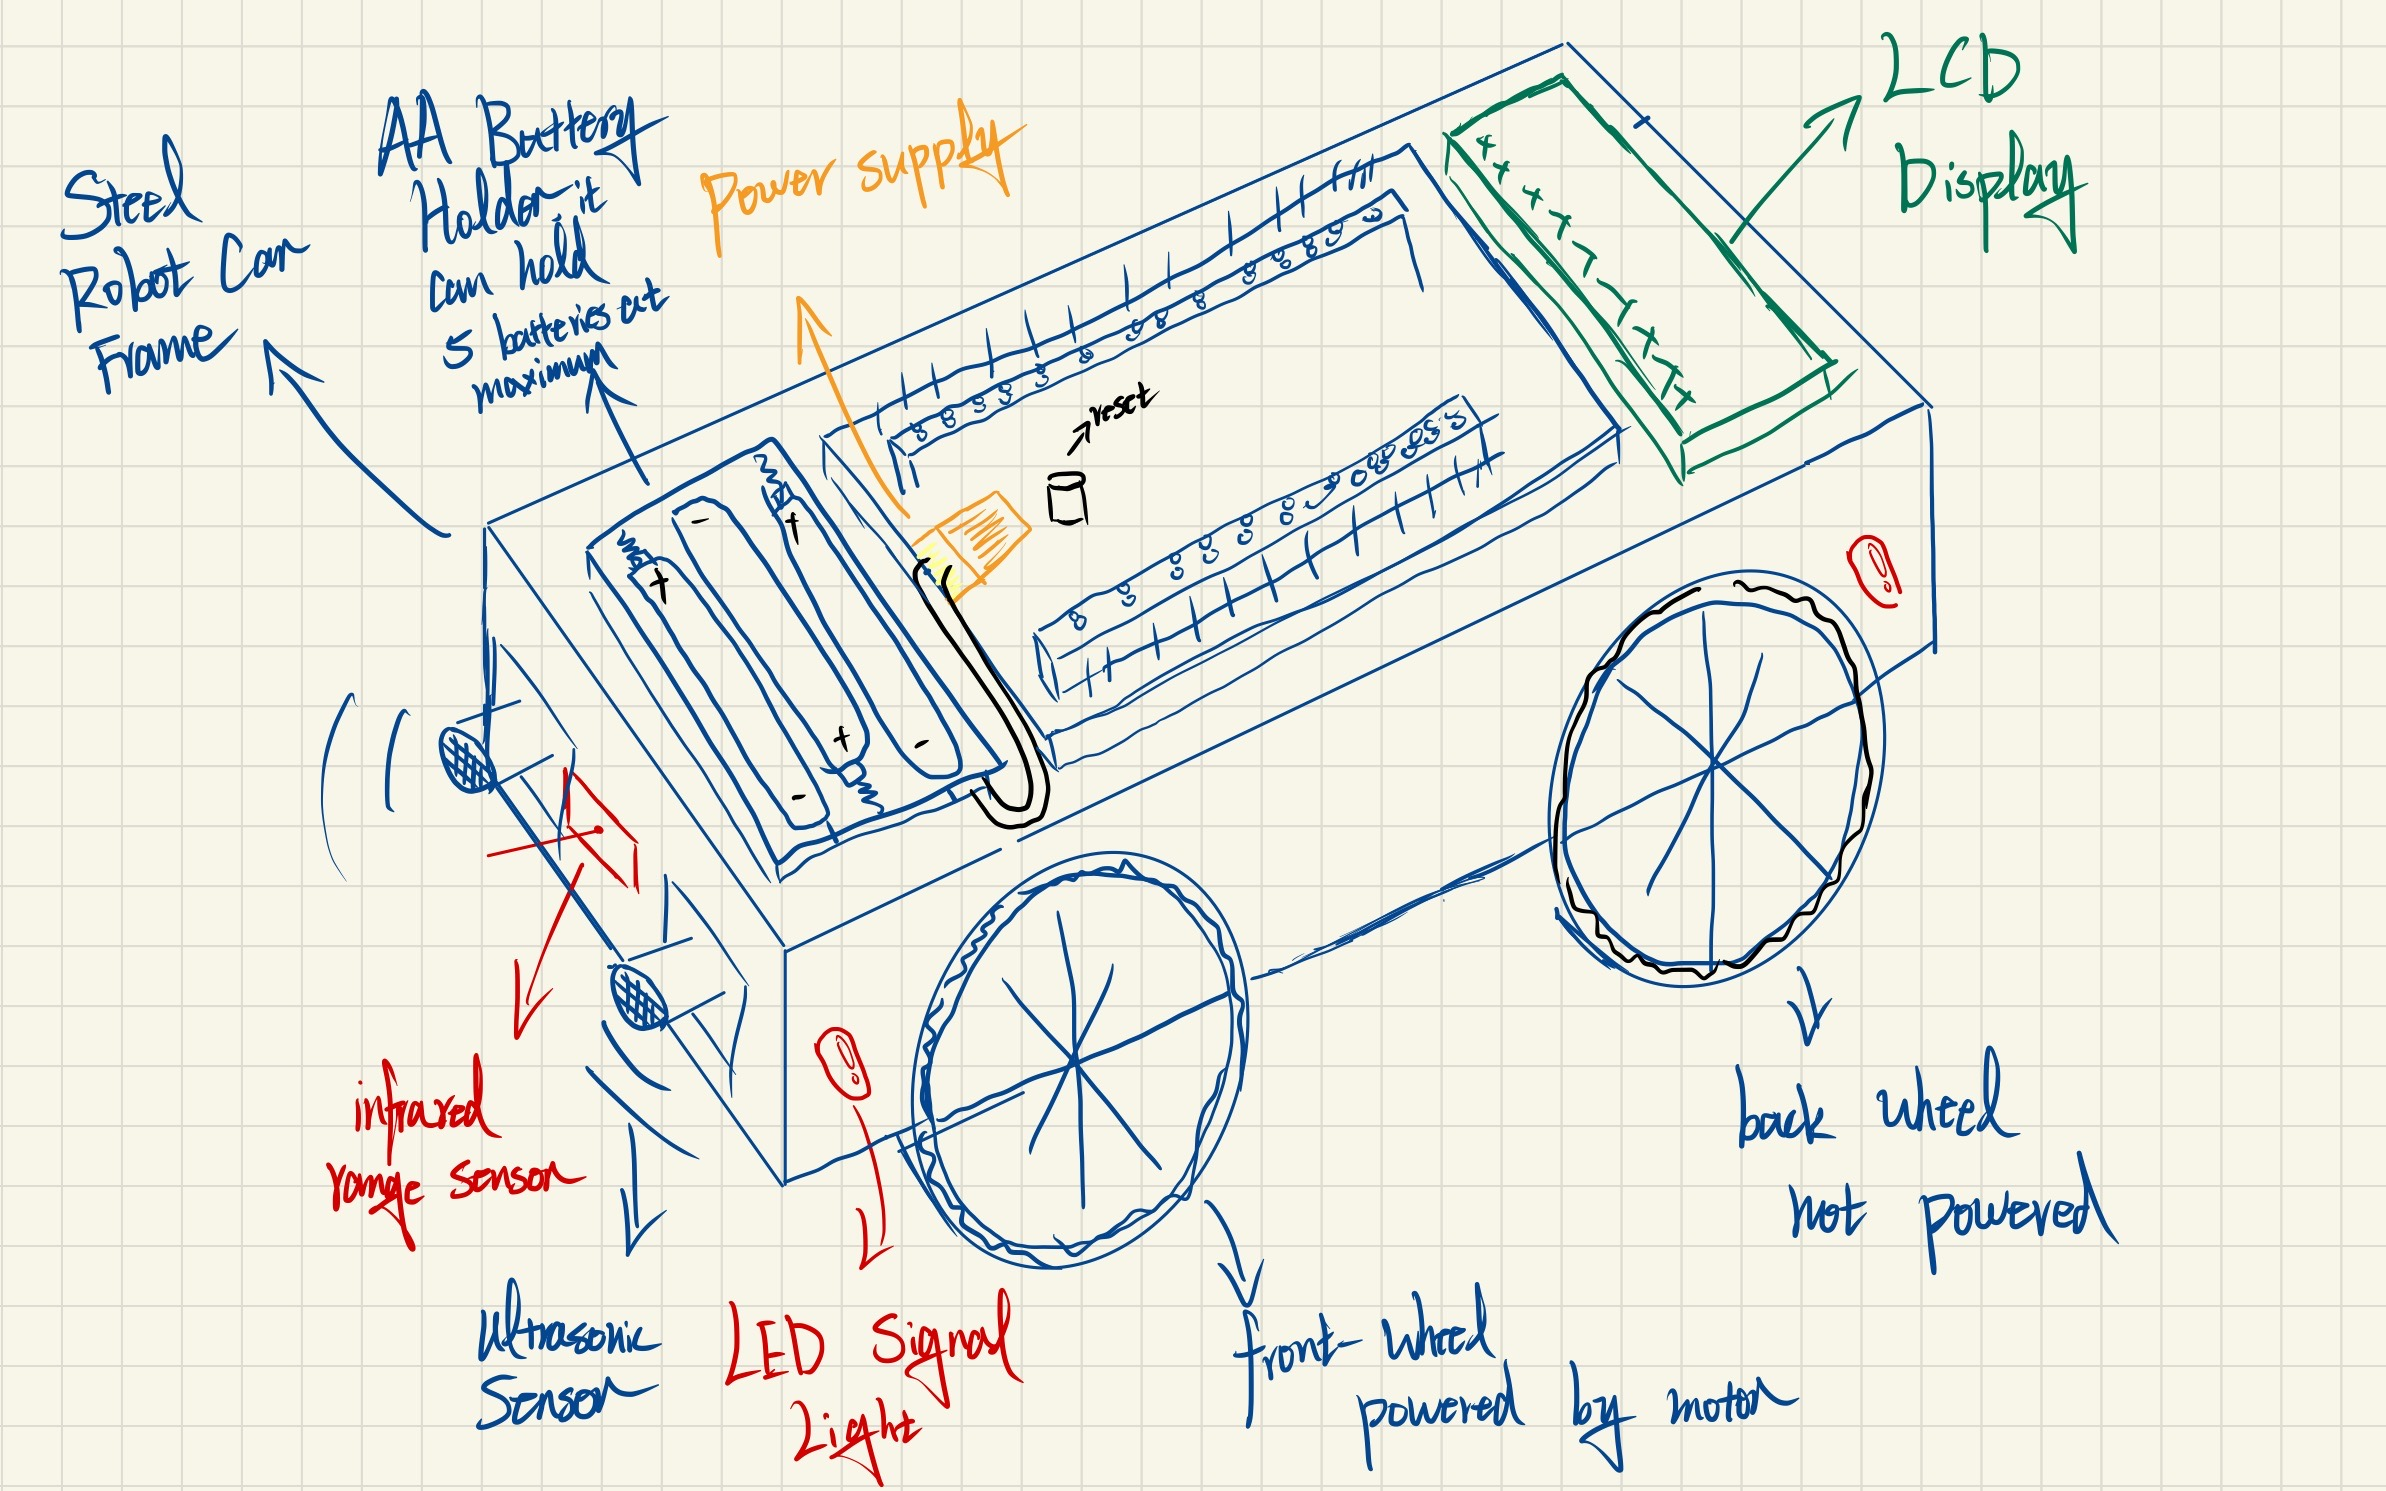 Steel
Robot Car
Frame
AA Battery
Holder-it
can hold
5 batteries at
maximum
Power supply
LCD
Display
reset
infrared
range sensor
Ultrasonic
Sensor
LED Signal
Light
front wheel
powered by motor
back wheel
not powered